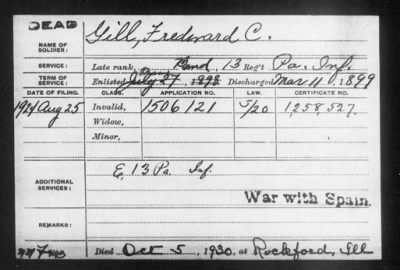 DEAD
NAME OF SOLDIER: Gill, Fredward C.
SERVICE: Late rank, Band, 13 Reg't Pa. Inf.
TERM OF SERVICE: Enlisted July 27, 1898 Discharged Mar 11, 1899
DATE OF FILING. CLASS. APPLICATION NO. LAW. CERTIFICATE NO.
1924 Aug 25 Invalid, 1506121 5/20 1,258,527.
Widow,
Minor,
ADDITIONAL SERVICES: E, 13 Pa. Inf.
War with Spain.
REMARKS:
Died Oct 5, 1930, at Rockford, Ill